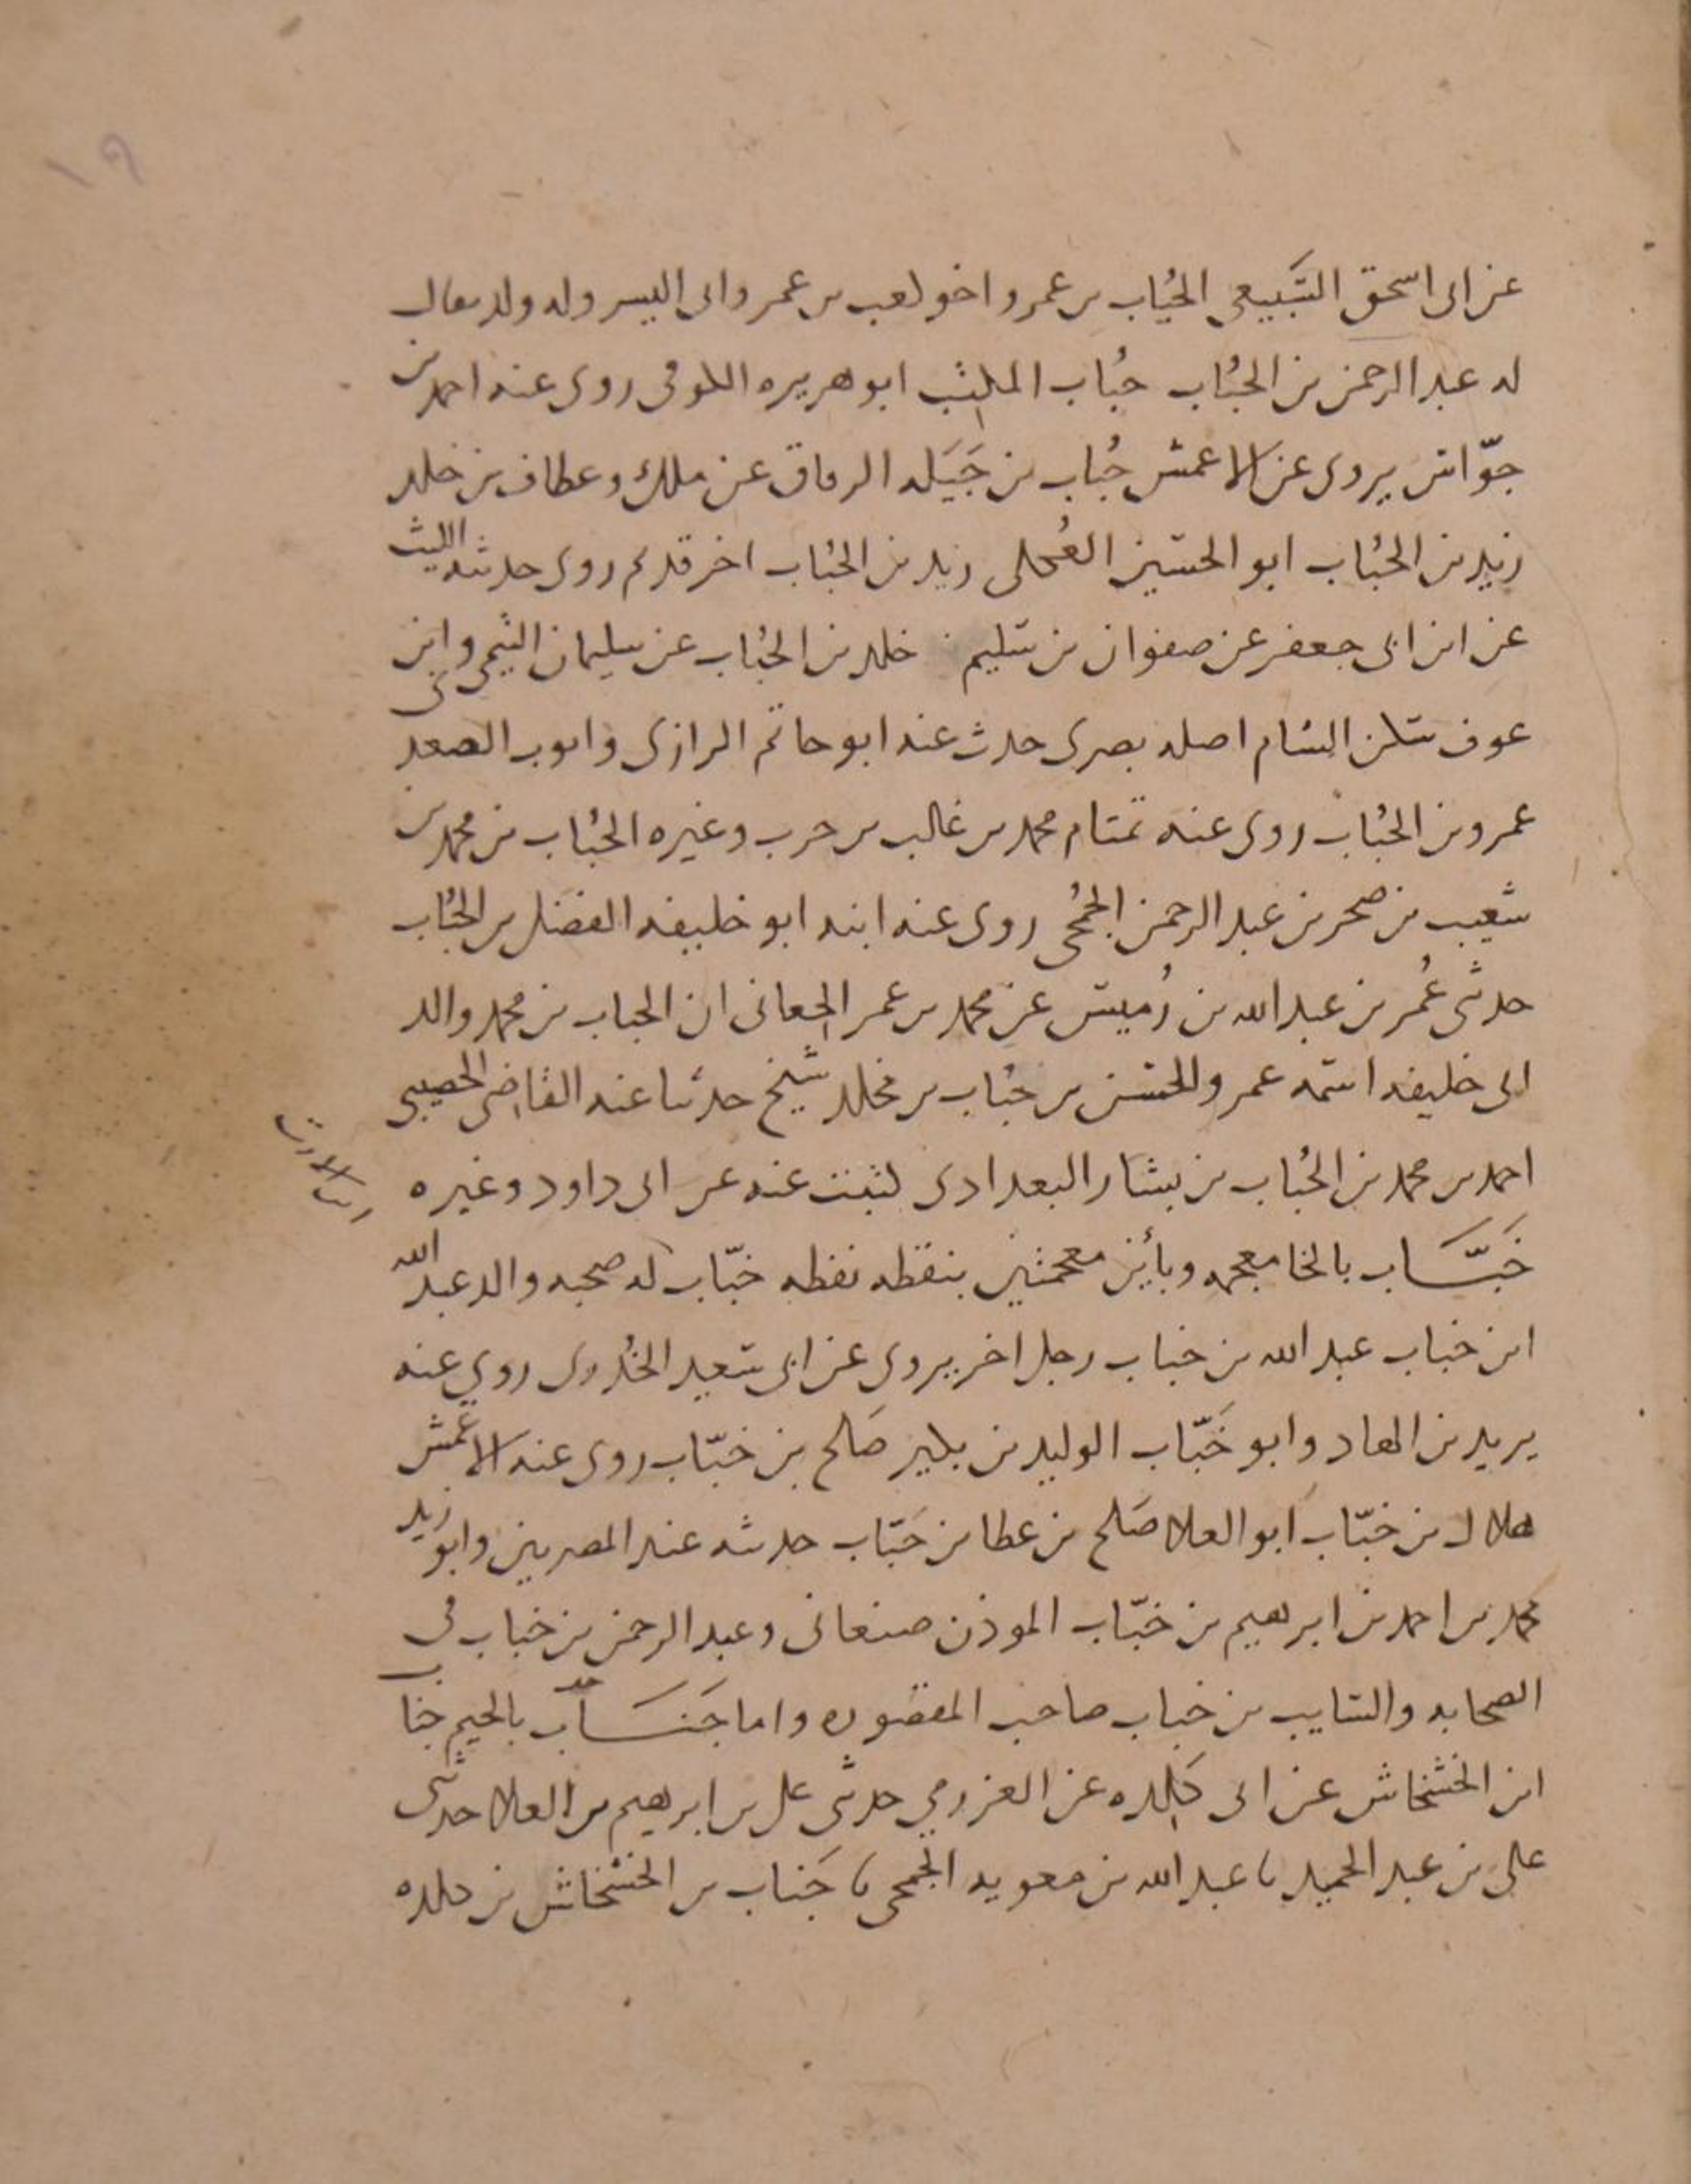 ١٩
عن ابى اسحق السَّبيعى الحُباب بن عمرو اخو كعب بن عمرو ابى اليسر وله ولد يقال
له عبد الرحمن بن الحُبُاب حُباب المكتب ابو هريره الكوفى روى عنه احمد بن
جوّاس يروى عن الاعمش حُباب بن جَبَله الدقاق عن ملك وعطاف بن خلد
زيد بن الحُبُاب ابو الحسين العُكلى زيد بن الحُباب اخر قديم روى حديثه الليث
عن ابن ابى جعفر عن صفوان بن سليم خلد بن الحُباب عن سليمان التيمى وابن
عوف سكن الشام اصله بصرى حدث عنه ابو حاتم الرازى وايوب
عمرو بن الحُبُاب روى عنه تمتام محمد بن غالب بن حرب وغيره الحُباب بن محمد بن
شعيب بن صخر بن عبد الرحمن الجُمحُى روى عنه ابنه ابو خليفه الفضل بن الحُبُاب
حدثى عُمر بن عبد الله بن رُميس عن محمد بن عمر الجعابى ان الحباب بن محمد والد
ابى خليفه اسمه عمرو والحسن بن حُباب بن مخلد شيخ حدثنا عنه القاضى الخصيبى
احمد بن محمد بن الحُباب بن بشار البغدادى كتبت عنه عن ابى داود وغيره
خَبَّـــاب بالخا معجمه وبأين معجمتين بنقطه نقطه خبّاب له صحبه والد عبد الله
ابن خباب عبد الله بن خباب رجل اخر يروى عن ابى سعيد الخُدرى روي عنه
يزيد بن الهاد وابو خَبّاب الوليد بن بكير صَلح بن خبّاب روى عنه الاعمش
هلال بن خبّاب ابو العلا صَلح بن عطا بن خَبّاب حديثه عند المصريين وابو زيد
محمد بن احمد بن ابرهيم بن خبّاب الموذن صنعانى وعبد الرحمن بن خباب فى
الصحابه والسايب بن خباب صاحب المقصوره واما جَنَـــاب بالجيم جناب
ابن الخشخاش عن ابى كَلده عن العرزمي حدثى على بن ابرهيم بن العلا حدثى
على بن عبد الحميد نا عبد الله بن معويه الجمحى نا جَناب بن الخشخاش بن كلده